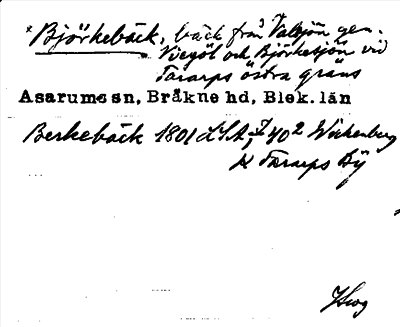 *Björkebäck, bäck från Valsjön gen.
Viegöl och Björkesjön vid
Tararps östra gräns
Asarums sn, Bräkne hd, Blek. län
Berkebäck 1801 LSA; 40² Wickenberg
K Tararps By